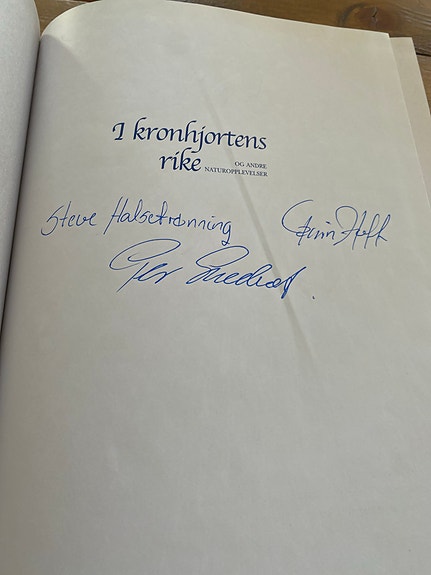 I kronhjortens
rike OG ANDRE
NATUROPPLEVELSER
Steve Halsetrønning
Finn Hoff
Per